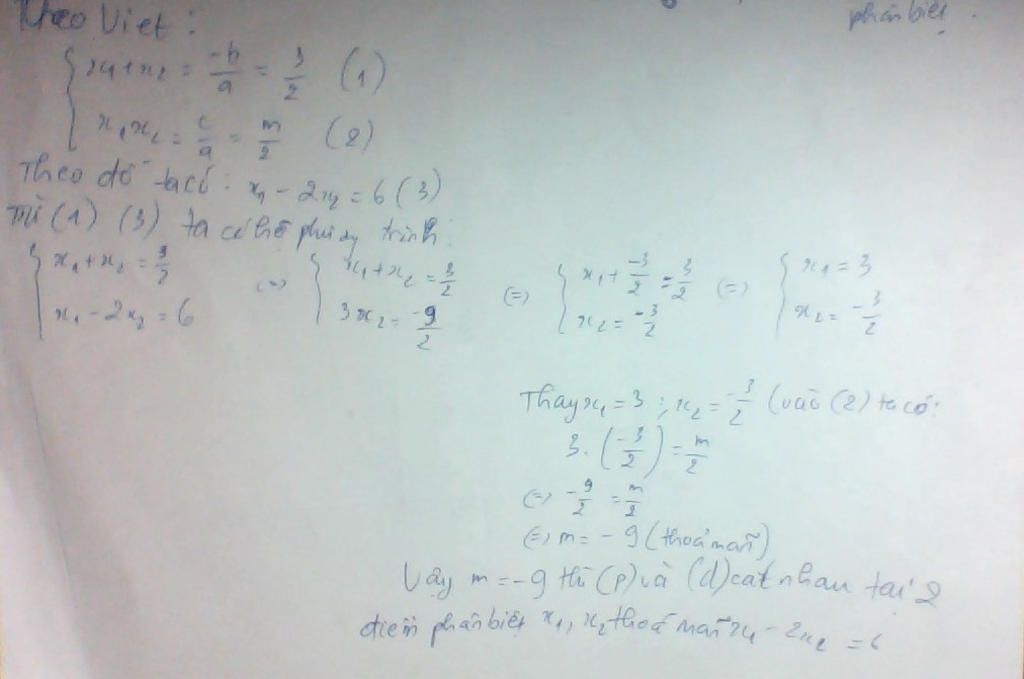 phân biệt.
Theo Viet:
x₁+x₂ = -b/a = 3/2 (1)
x₁x₂ = c/a = m/2 (2)
Theo đề ta có: x₁ - 2x₂ = 6 (3)
Từ (1) (3) ta có hệ phương trình:
{ x₁+x₂ = 3/2 ; x₁ - 2x₂ = 6 (=) { x₁+x₂ = 3/2 ; 3x₂ = -9/2 (=) { x₁ + -3/2 = 3/2 ; x₂ = -3/2 (=) { x₁ = 3 ; x₂ = -3/2
Thay x₁ = 3 ; x₂ = -3/2 (vào (2) ta có:
3. (-3/2) = m/2
(=) -9/2 = m/2
(=) m = -9 (thoả mãn)
Vậy m = -9 thì (P) và (d) cắt nhau tại 2
điểm phân biệt x₁, x₂ thoả mãn x₁ - 2x₂ = 6